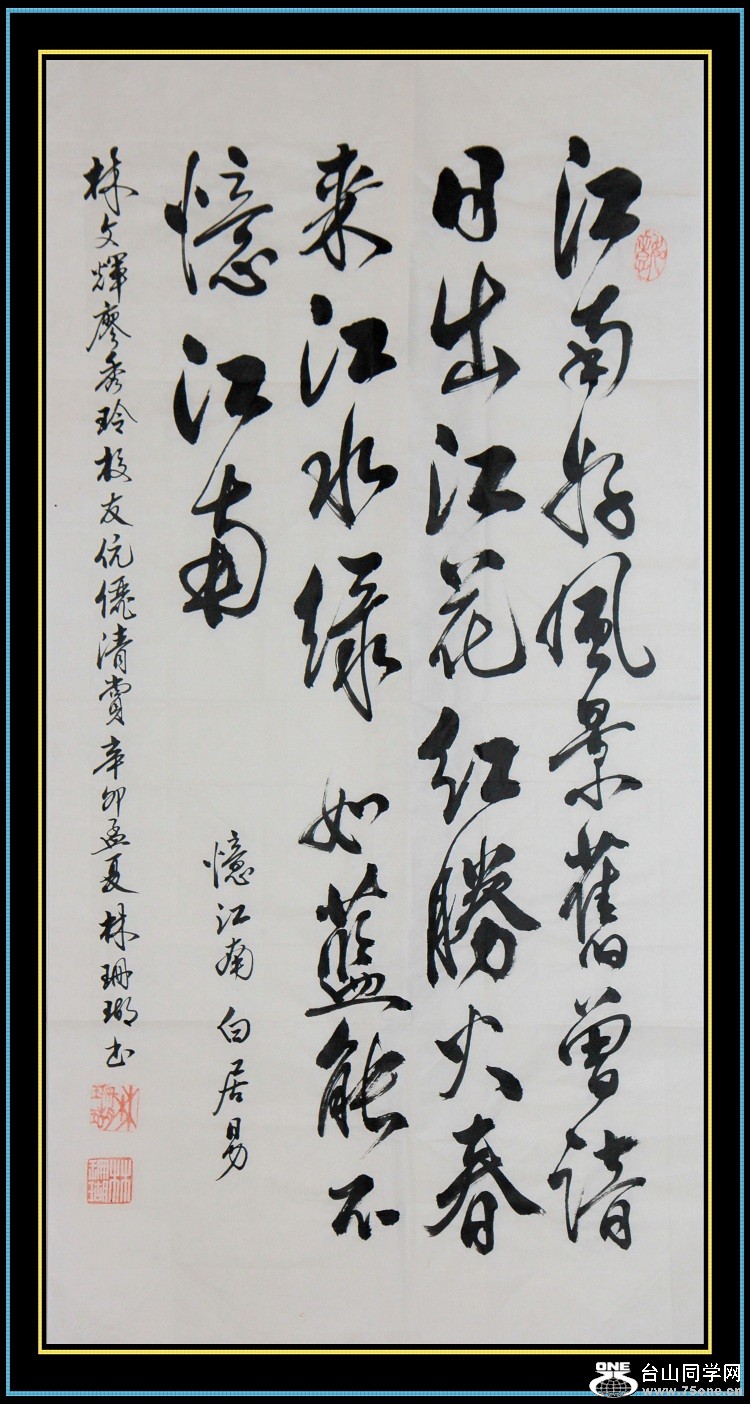 江南好風景舊曾諳
日出江花紅勝火春
來江水綠如藍能不
憶江南
憶江南 白居易
林文輝廖秀玲校友伉儷清賞辛卯孟夏林珊瑚书
林珊瑚
ONE
台山同学网
www.75one.cn